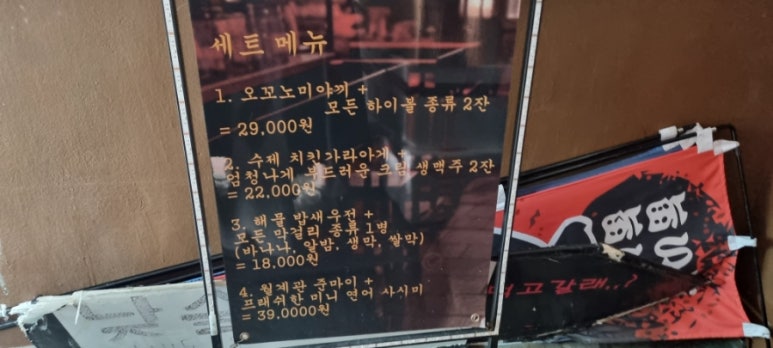 세트 메뉴
1. 오꼬노미야끼 +
모든 하이볼 종류 2잔
= 29,000원
2. 수제 치킨가라아게 +
엄청나게 부드러운 크림 생맥주 2잔
= 22,000원
3. 해물 밥새우전 +
모든 막걸리 종류 1병
(바나나, 알밤, 생막, 쌀막)
= 18.000원
4. 월계관 준마이 +
프래쉬한 미니 연어 사시미
= 39.0000원
먹고갈래..?